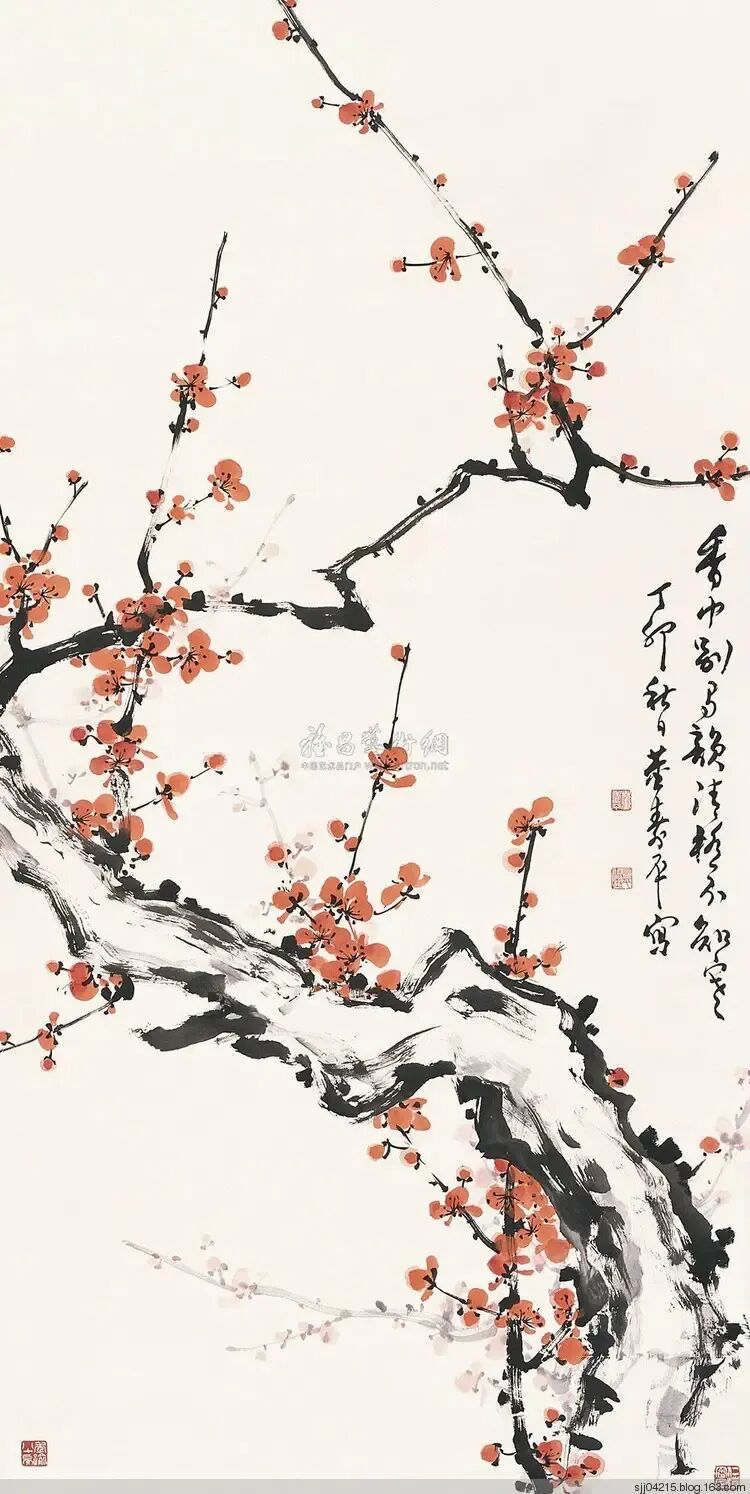 香中别有韵清极不知寒
丁卯秋日董寿平写
雅昌艺术網
中国艺术品门户
sjj04215.blog.163.com